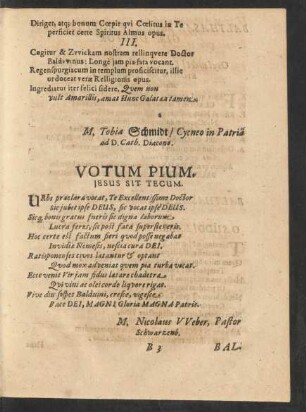 Diriget, atq; bonum Cœpit qvi Cœlitus in Te
perficiet certe Spiritus Almus opus.
III.
Cogitur & Zvvickam nostram relinqvere Doctor
Balduvinus: Longè jam pia fata vocant.
Regenspurgiacum in templum proficiscitur, illic
ut doceat veræ Relligionis opus.
Ingrediatur iter felici sidere. Quem non
vult Amarillis, amat Hunc Galatæa tamen.
M. Tobia Schmidt / Cycneo in Patriâ
ad D. Cath. Diacono.
VOTUM PIUM.
JESUS SIT TECUM.
URbs præclara vocat, Te Excellentissime Doctor
sic jubet ipse DEUS, sic vocat ipse DEUS.
Sic q, bonis gratus fueris sic digna laborum
Lucra feres, sic post fata superstes eris.
Hoc certe est factum fieri quod posse negabat
Invidia Nemesis, nescia cura DEI.
Ratisponenses cives lætantur & optant
Quod mox advenias quem pia turba vocat.
Ecce venit Vir jam fidus latare cathedra
Qui vini ac olei corde liquore rigat.
Vive diu sospes Balduini, cresce, vigesce
Pace DEI, MAGNI Gloria MAGNA Patris.
M. Nicolaus VVeber, Pastor
Schwarzenb.
B 3 BAL-